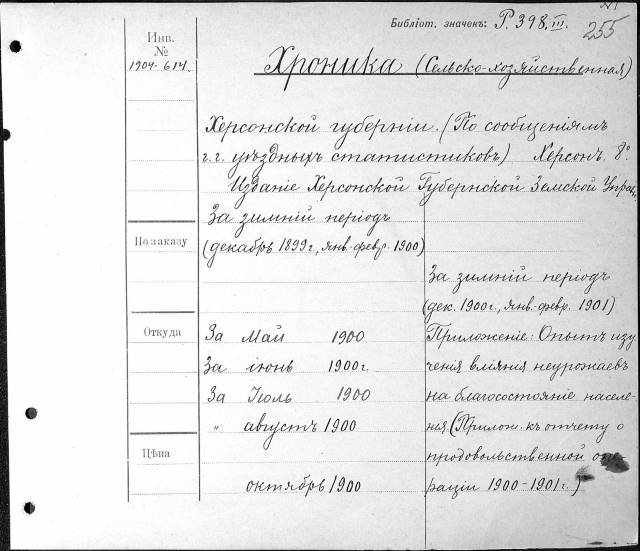 Библіот. значекъ: Р. 398. III.
255
Инв.
№
1904-614.
Хроника (Сельско-хозяйственная)
Херсонской губерніи. (По сообщеніямъ
г.г. уѣздныхъ статистиковъ) Херсонъ. 8º
Изданіе Херсонской Губернской Земской Управ.
За зимній періодъ
По заказу
(декабрь 1899 г., янв.-февр. 1900)
За зимній періодъ
(дек. 1900 г., янв.-февр. 1901)
Откуда
За Май 1900
За іюнь 1900 г.
За Іюль 1900
" августъ 1900
Цѣна
октябрь 1900
Приложеніе: Опытъ изу
ченія вліянія неурожаевъ
на благосостояніе населе-
нія (Прилож. къ отчету о
продовольственной опе
раціи 1900-1901 г.)